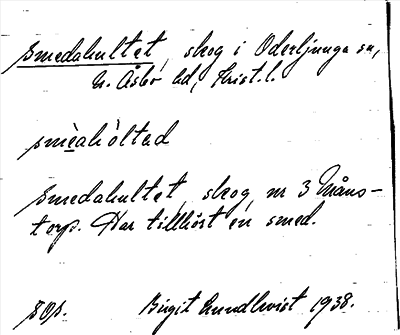 Smedahultet, skog i Oderljunga sn,
N. Åsbo hd, Krist. l.
smèahòltad
Smedahultet, skog, nr 3 Måns-
torp. Har tillhört en smed.
Birgit Lundkvist 1938.